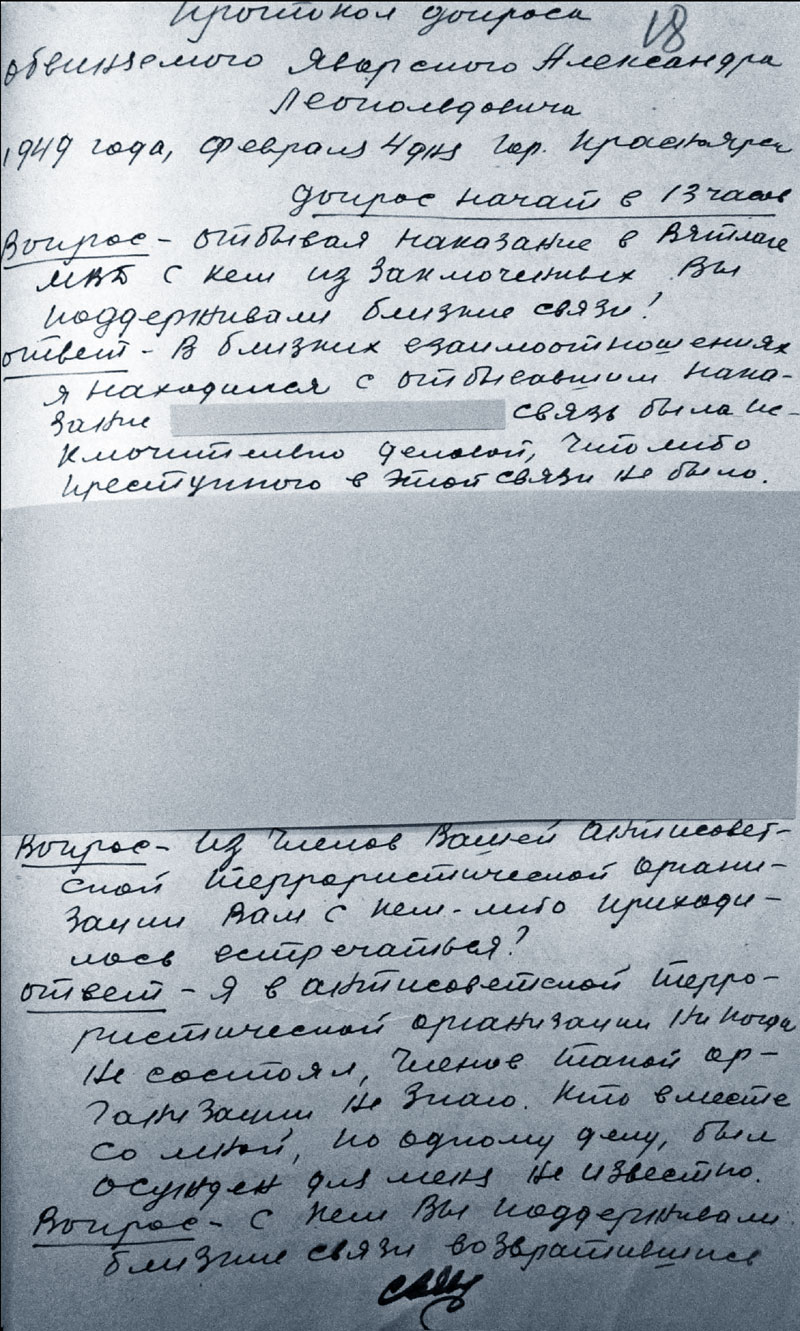 Протокол допроса
18
обвиняемого Яворского Александра
Леопольдовича
1949 года, февраля 4 дня гор. Красноярск
Допрос начат в 13 часов
Вопрос - отбывая наказание в Вятлаге
МВД с кем из заключенных Вы
поддерживали близкие связи?
ответ - В близких взаимоотношениях
я находился с отбывавшим нака-
зание связь была ис-
ключительно деловой, что либо
преступного в этой связи не было.
Вопрос - Из членов Вашей антисовет-
ской террористической органи-
зации Вам с кем-либо приходи-
лось встречаться?
ответ - Я в антисоветской терро-
ристической организации ни когда
не состоял, членов такой ор-
ганизации не знаю. Кто вместе
со мной, по одному делу, был
осужден для меня не известно.
Вопрос - С кем Вы поддерживали
близкие связи возвратившись